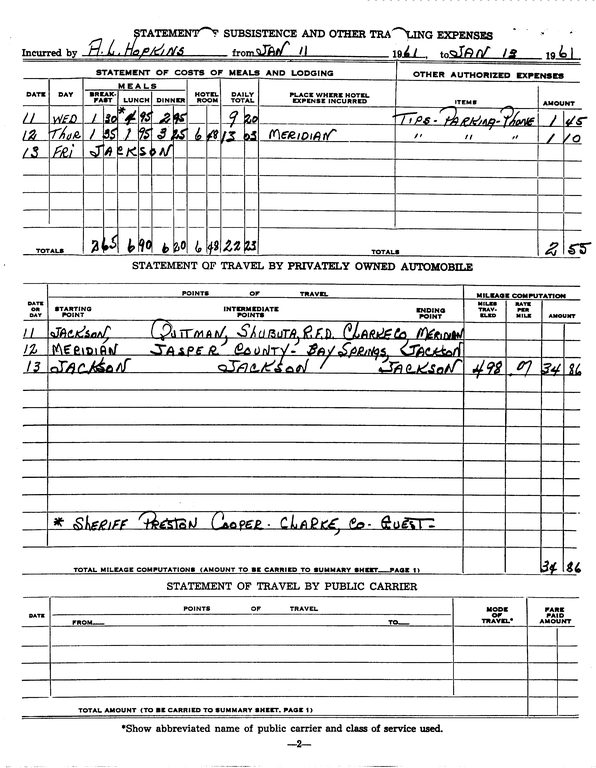 STATEMENT OF SUBSISTENCE AND OTHER TRA LING EXPENSES
Incurred by A.L. HOPKINS from JAN 11 1961, to JAN 13 1961
STATEMENT OF COSTS OF MEALS AND LODGING OTHER AUTHORIZED EXPENSES
MEALS
DATE DAY BREAK-FAST LUNCH DINNER HOTEL ROOM DAILY TOTAL PLACE WHERE HOTEL EXPENSE INCURRED ITEMS AMOUNT
11 WED 1 30 * 4 95 2 95 9 20 TIPS - PARKING - PHONE 1 45
12 THUR 1 35 1 95 3 25 6 48 13 03 MERIDIAN " " " 1 10
13 FRI JACKSON
TOTALS 2 65 6 90 6 20 6 48 22 23 TOTALS 2 55
STATEMENT OF TRAVEL BY PRIVATELY OWNED AUTOMOBILE
POINTS OF TRAVEL MILEAGE COMPUTATION
DATE OR DAY STARTING POINT INTERMEDIATE POINTS ENDING POINT MILES TRAV-ELED RATE PER MILE AMOUNT
11 JACKSON, QUITMAN, SHUBUTA, R.F.D. CLARKE CO MERIDIAN
12 MERIDIAN JASPER COUNTY - BAY SPRINGS, JACKSON
13 JACKSON JACKSON JACKSON 498 .07 34 86
* SHERIFF PRESTON COOPER - CLARKE, CO - GUEST -
TOTAL MILEAGE COMPUTATIONS (AMOUNT TO BE CARRIED TO SUMMARY SHEET PAGE 1) 34 86
STATEMENT OF TRAVEL BY PUBLIC CARRIER
DATE POINTS OF TRAVEL MODE OF TRAVEL* FARE PAID AMOUNT
FROM TO
TOTAL AMOUNT (TO BE CARRIED TO SUMMARY SHEET, PAGE 1)
*Show abbreviated name of public carrier and class of service used.
—2—